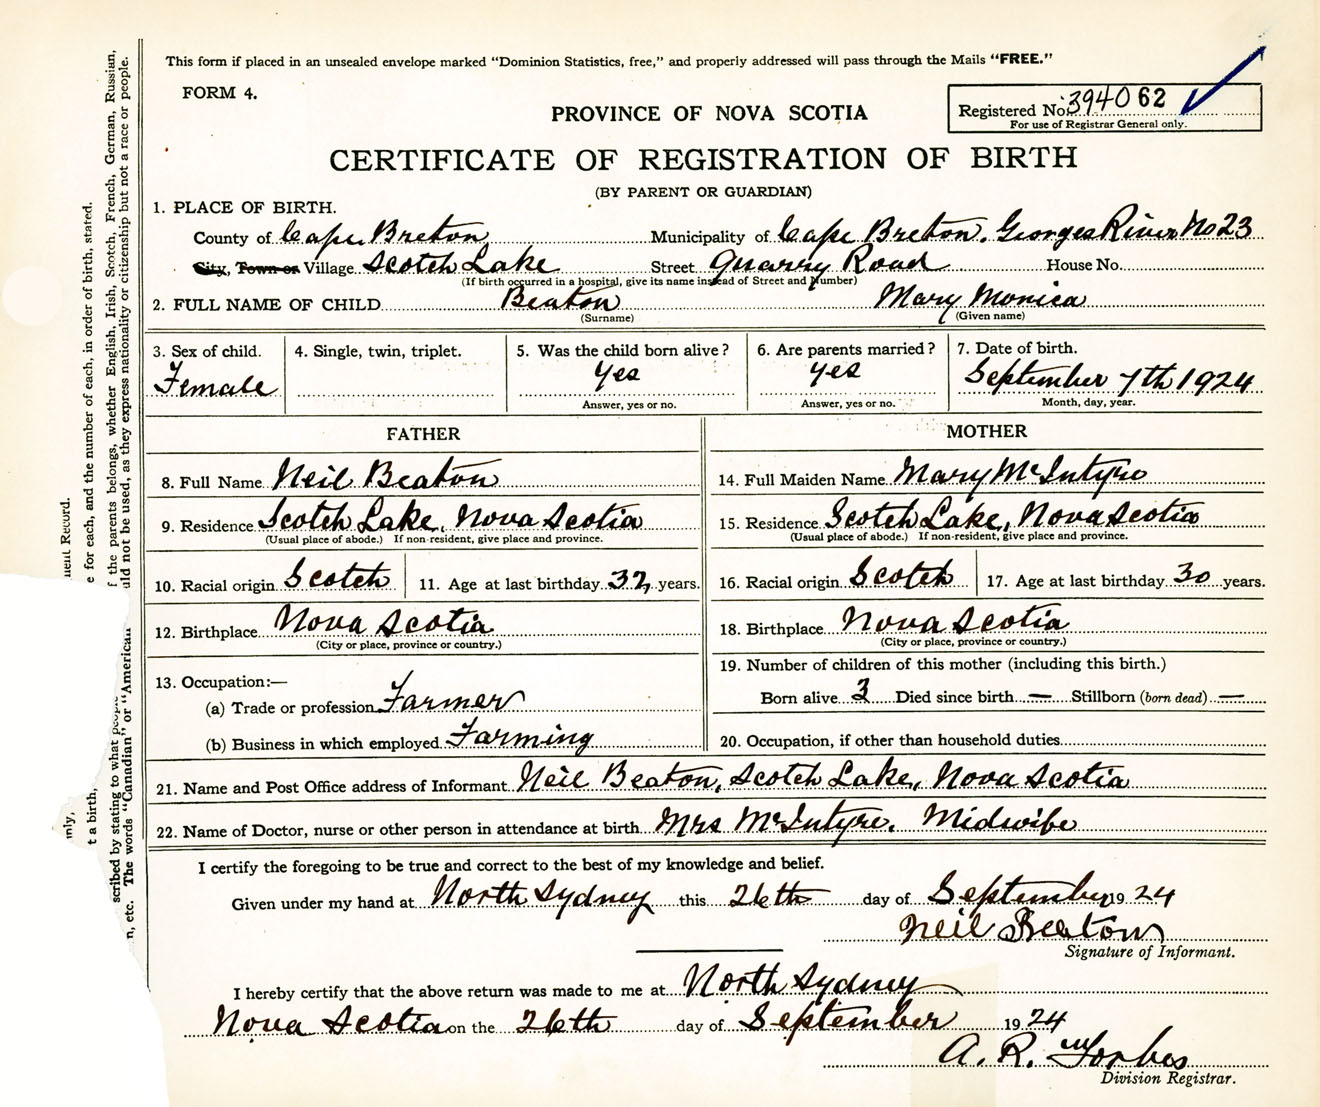 This form if placed in an unsealed envelope marked “Dominion Statistics, free,” and properly addressed will pass through the Mails “FREE.”
FORM 4.
PROVINCE OF NOVA SCOTIA
Registered No. 394062
For use of Registrar General only.
CERTIFICATE OF REGISTRATION OF BIRTH
(BY PARENT OR GUARDIAN)
1. PLACE OF BIRTH.
County of Cape Breton Municipality of Cape Breton. Georges River No 23
City, Town or Village Scotch Lake Street Quarry Road House No.
(If birth occurred in a hospital, give its name instead of Street and Number)
2. FULL NAME OF CHILD Beaton Mary Monica
(Surname) (Given name)
3. Sex of child. 4. Single, twin, triplet. 5. Was the child born alive? 6. Are parents married? 7. Date of birth.
Female Yes Yes September 7th 1924
Answer, yes or no. Answer, yes or no. Month, day, year.
FATHER
8. Full Name Neil Beaton
9. Residence Scotch Lake, Nova Scotia
(Usual place of abode.) If non-resident, give place and province.
10. Racial origin Scotch 11. Age at last birthday 32 years.
12. Birthplace Nova Scotia
(City or place, province or country.)
13. Occupation:—
(a) Trade or profession Farmer
(b) Business in which employed Farming
MOTHER
14. Full Maiden Name Mary McIntyre
15. Residence Scotch Lake, Nova Scotia
(Usual place of abode.) If non-resident, give place and province.
16. Racial origin Scotch 17. Age at last birthday 30 years.
18. Birthplace Nova Scotia
(City or place, province or country.)
19. Number of children of this mother (including this birth.)
Born alive 3 Died since birth — Stillborn (born dead) —
20. Occupation, if other than household duties
21. Name and Post Office address of Informant Neil Beaton, Scotch Lake, Nova Scotia
22. Name of Doctor, nurse or other person in attendance at birth Mrs McIntyre. Midwife
I certify the foregoing to be true and correct to the best of my knowledge and belief.
Given under my hand at North Sydney this 26th day of September 1924
Neil Beaton
Signature of Informant.
I hereby certify that the above return was made to me at North Sydney
Nova Scotia on the 26th day of September 1924
A. R. Forbes
Division Registrar.
n, etc. The words “Canadian” or “American” uld not be used, as they express nationality or citizenship but not a race or people.
scribed by stating to what people f the parents belongs, whether English, Irish, Scotch, French, German, Russian,
t a birth, e for each, and the number of each, in order of birth, stated.
Record.